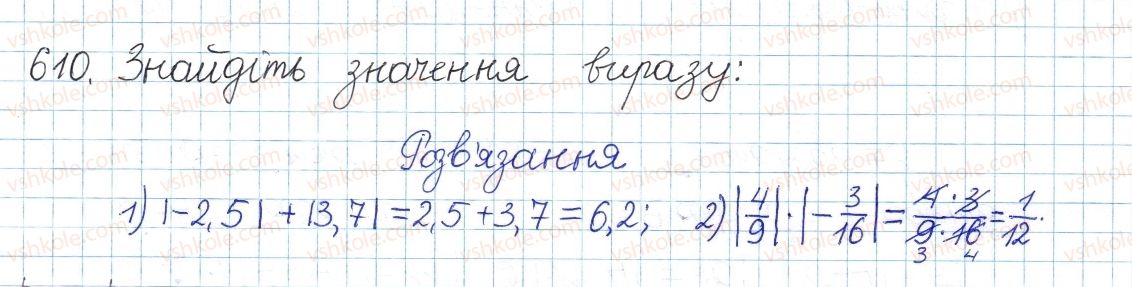 610. Знайдіть значення виразу:
Розв'язання
1) |-2,5| + |3,7| = 2,5 + 3,7 = 6,2; 2) |4/9| · |-3/16| = (4·3)/(9·16) = 1/12.
3 4